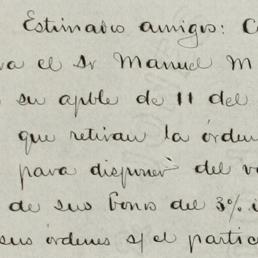 Estimado amigo: C
va el Sr Manuel M
su apble de 11 del
que retiran la órden
para disponer del v
de sus bonos del 3% i
sus órdenes s/ el partic